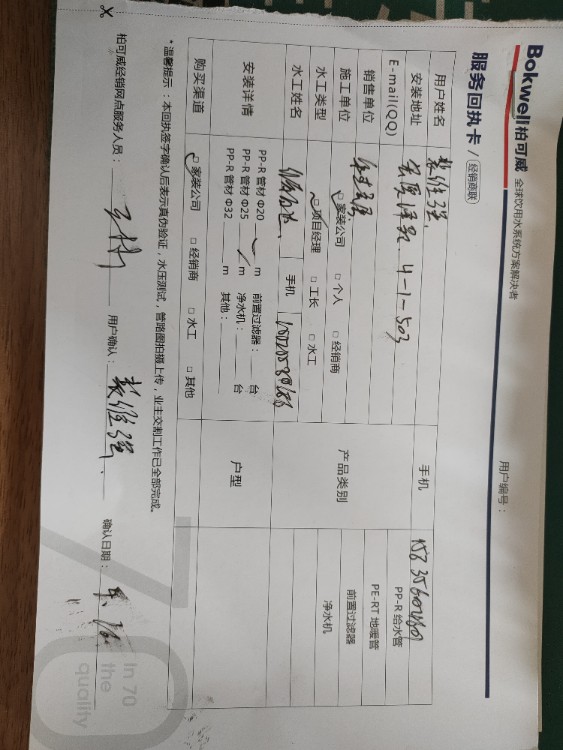 Bokwell 柏可威 全球饮用水系统方案解决者
服务回执卡 / 经销商联
用户编号：
用户姓名
手机
安装地址 4-1-503
E-mail(QQ)
销售单位
产品类别
PP-R 给水管
PE-RT 地暖管
前置过滤器
净水机
施工单位 家装公司 个人 经销商
水工类型 项目经理 工长 水工
水工姓名
手机
安装详情
PP-R 管材 Φ20 m 前置过滤器： 台
PP-R 管材 Φ25 m 净水机： 台
PP-R 管材 Φ32 m 其他：
户型
购买渠道 家装公司 经销商 水工 其他
*温馨提示：本回执签字确认后表示真伪验证，水压测试，管路图拍摄上传，业主交割工作已全部完成。
柏可威经销网点服务人员： 用户确认： 确认日期：
In 70
the
quality